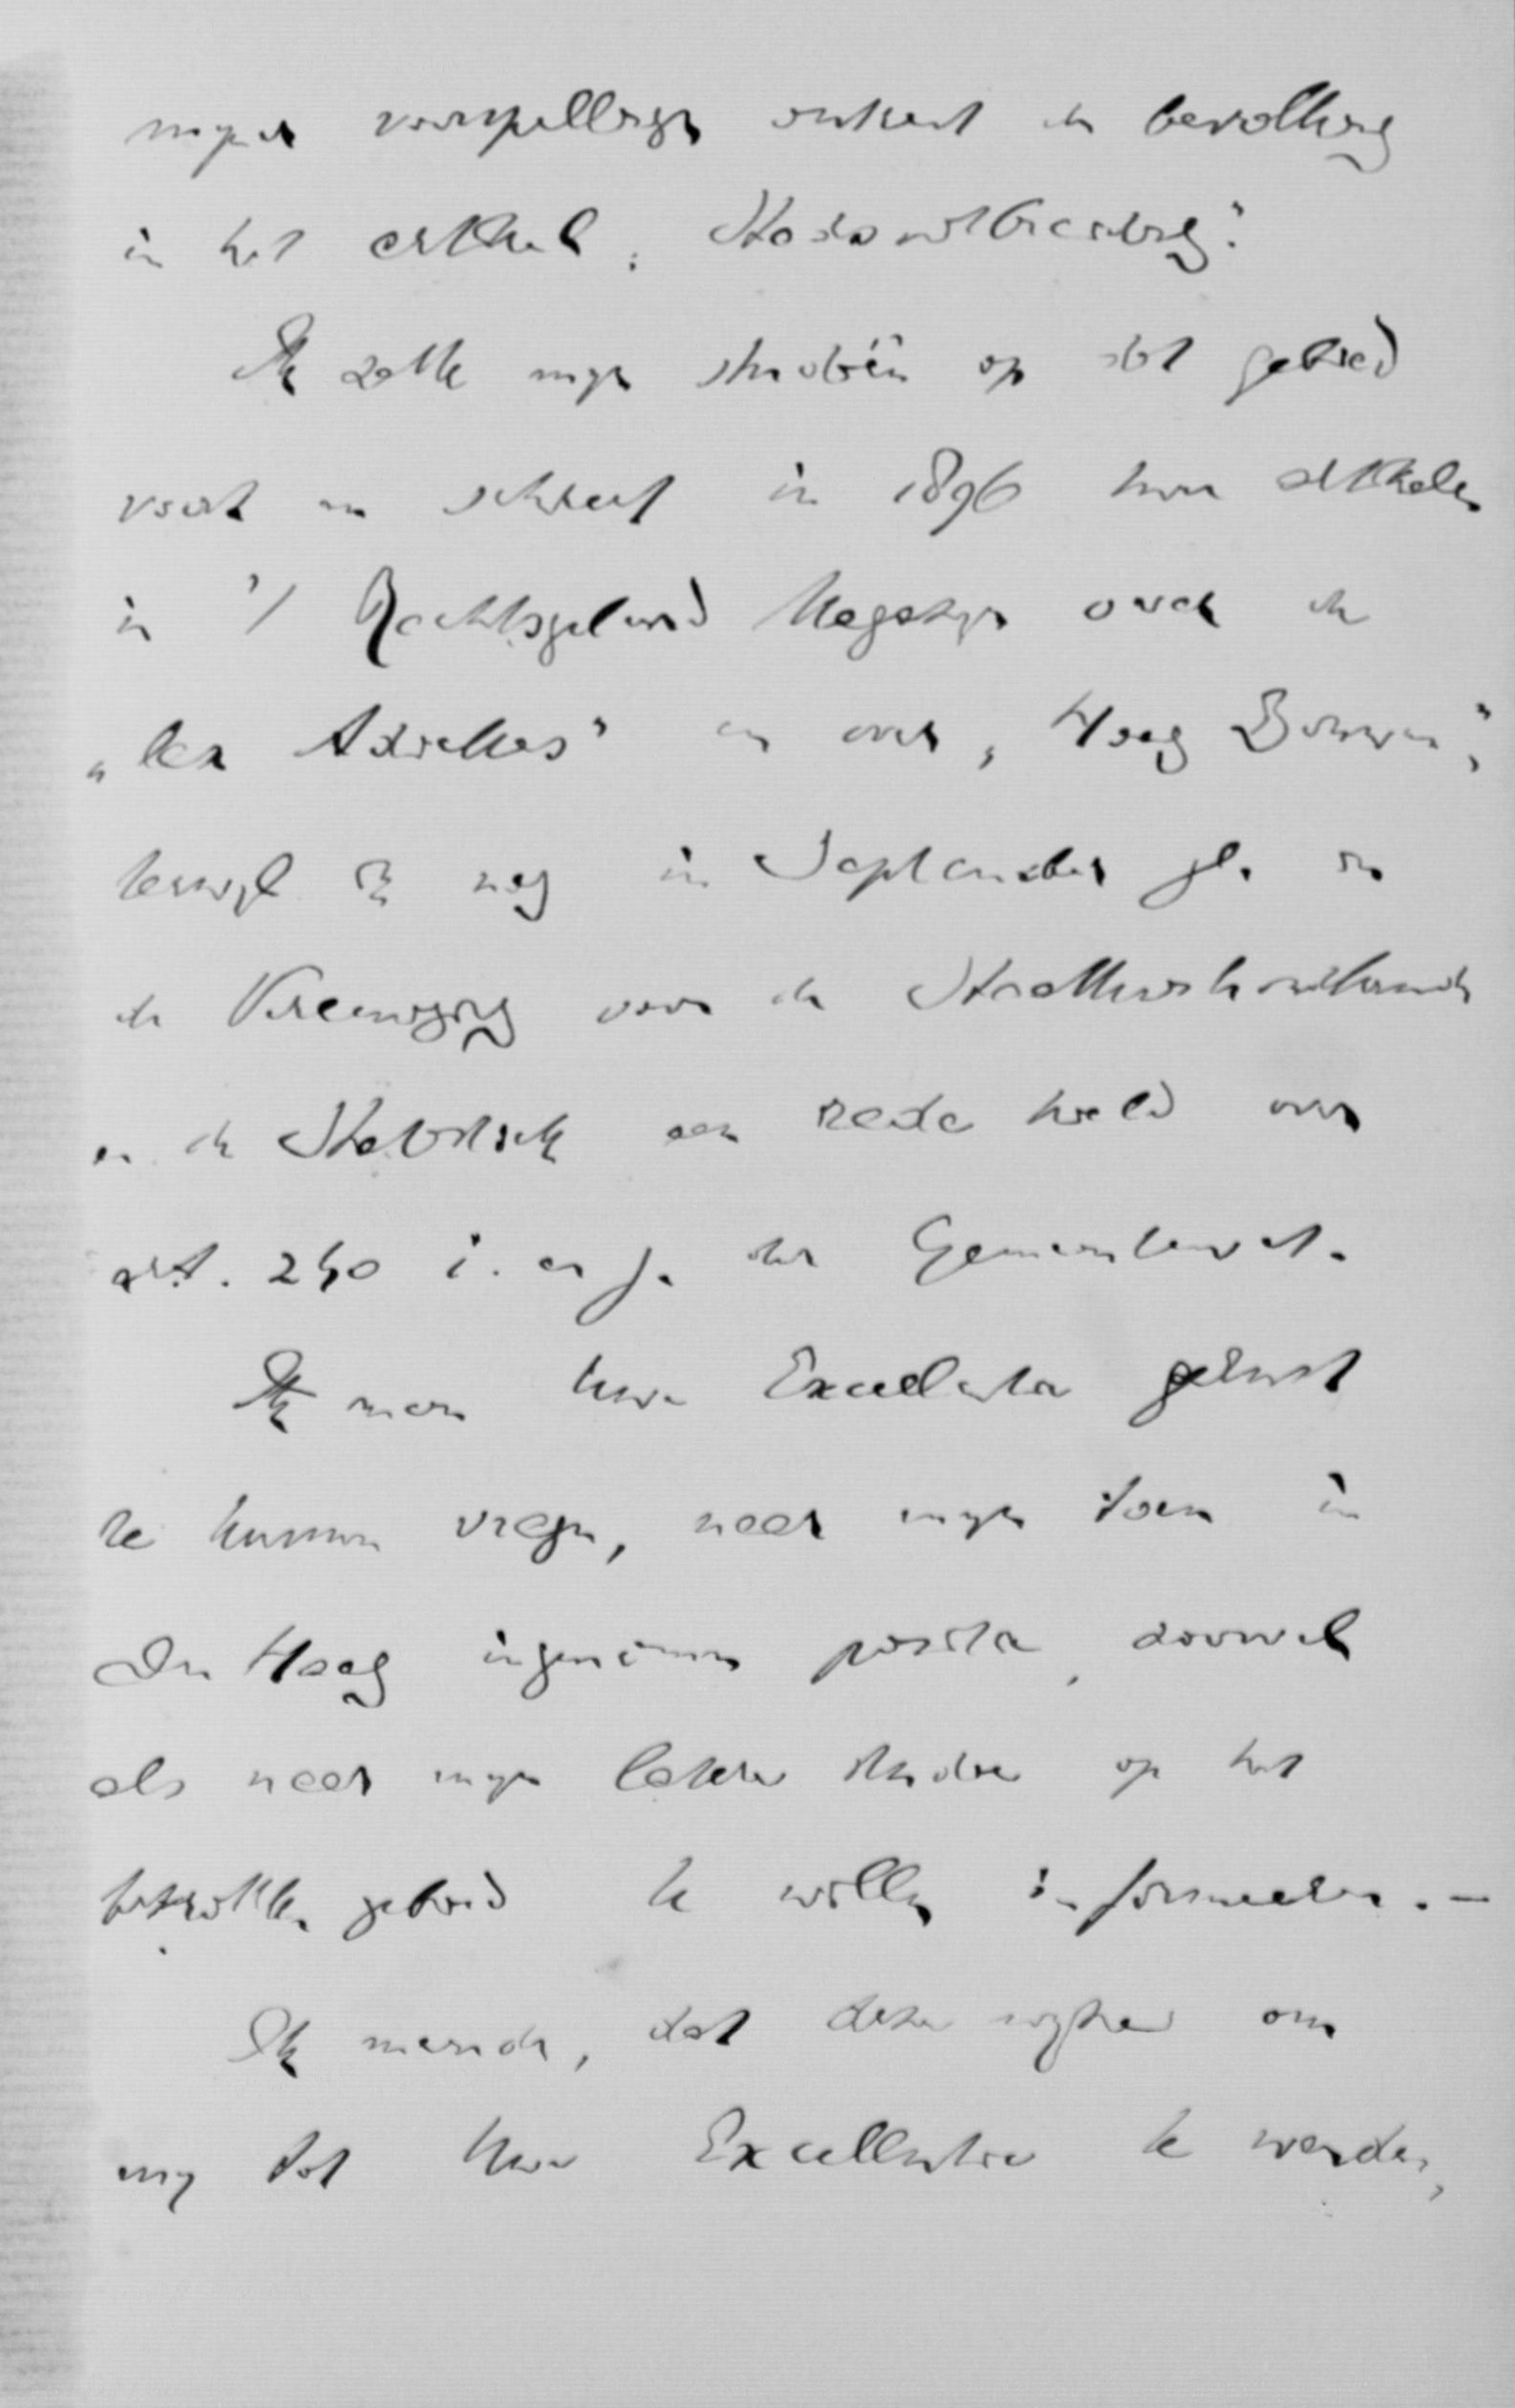 mijner voorspellingen omtrent de bevolking
in het artikel „Stadsuitbreiding".
Ik zette mijn studiën op dat gebied
voort en schreef in 1896 twee artikelen
in 't Rechtsgeleerd Magazijn over de
„lex Adickes" en over „Hoog Bouwen",
terwijl ik nog in September jl. in
de Vereeniging voor de Staathuishoudkunde
en de Statistiek een rede hield over
art. 240 i. en j. der Gemeentewet.
Ik meen Uwe Excellentie gerust
te kunnen vragen, naar mijn toen in
Den Haag ingenomen positie, zoowel
als naar mijn latere studie op het
betrokken gebied te willen informeeren. —
Ik meende, dat deze wijze om
mij tot Uwe Excellentie te wenden,